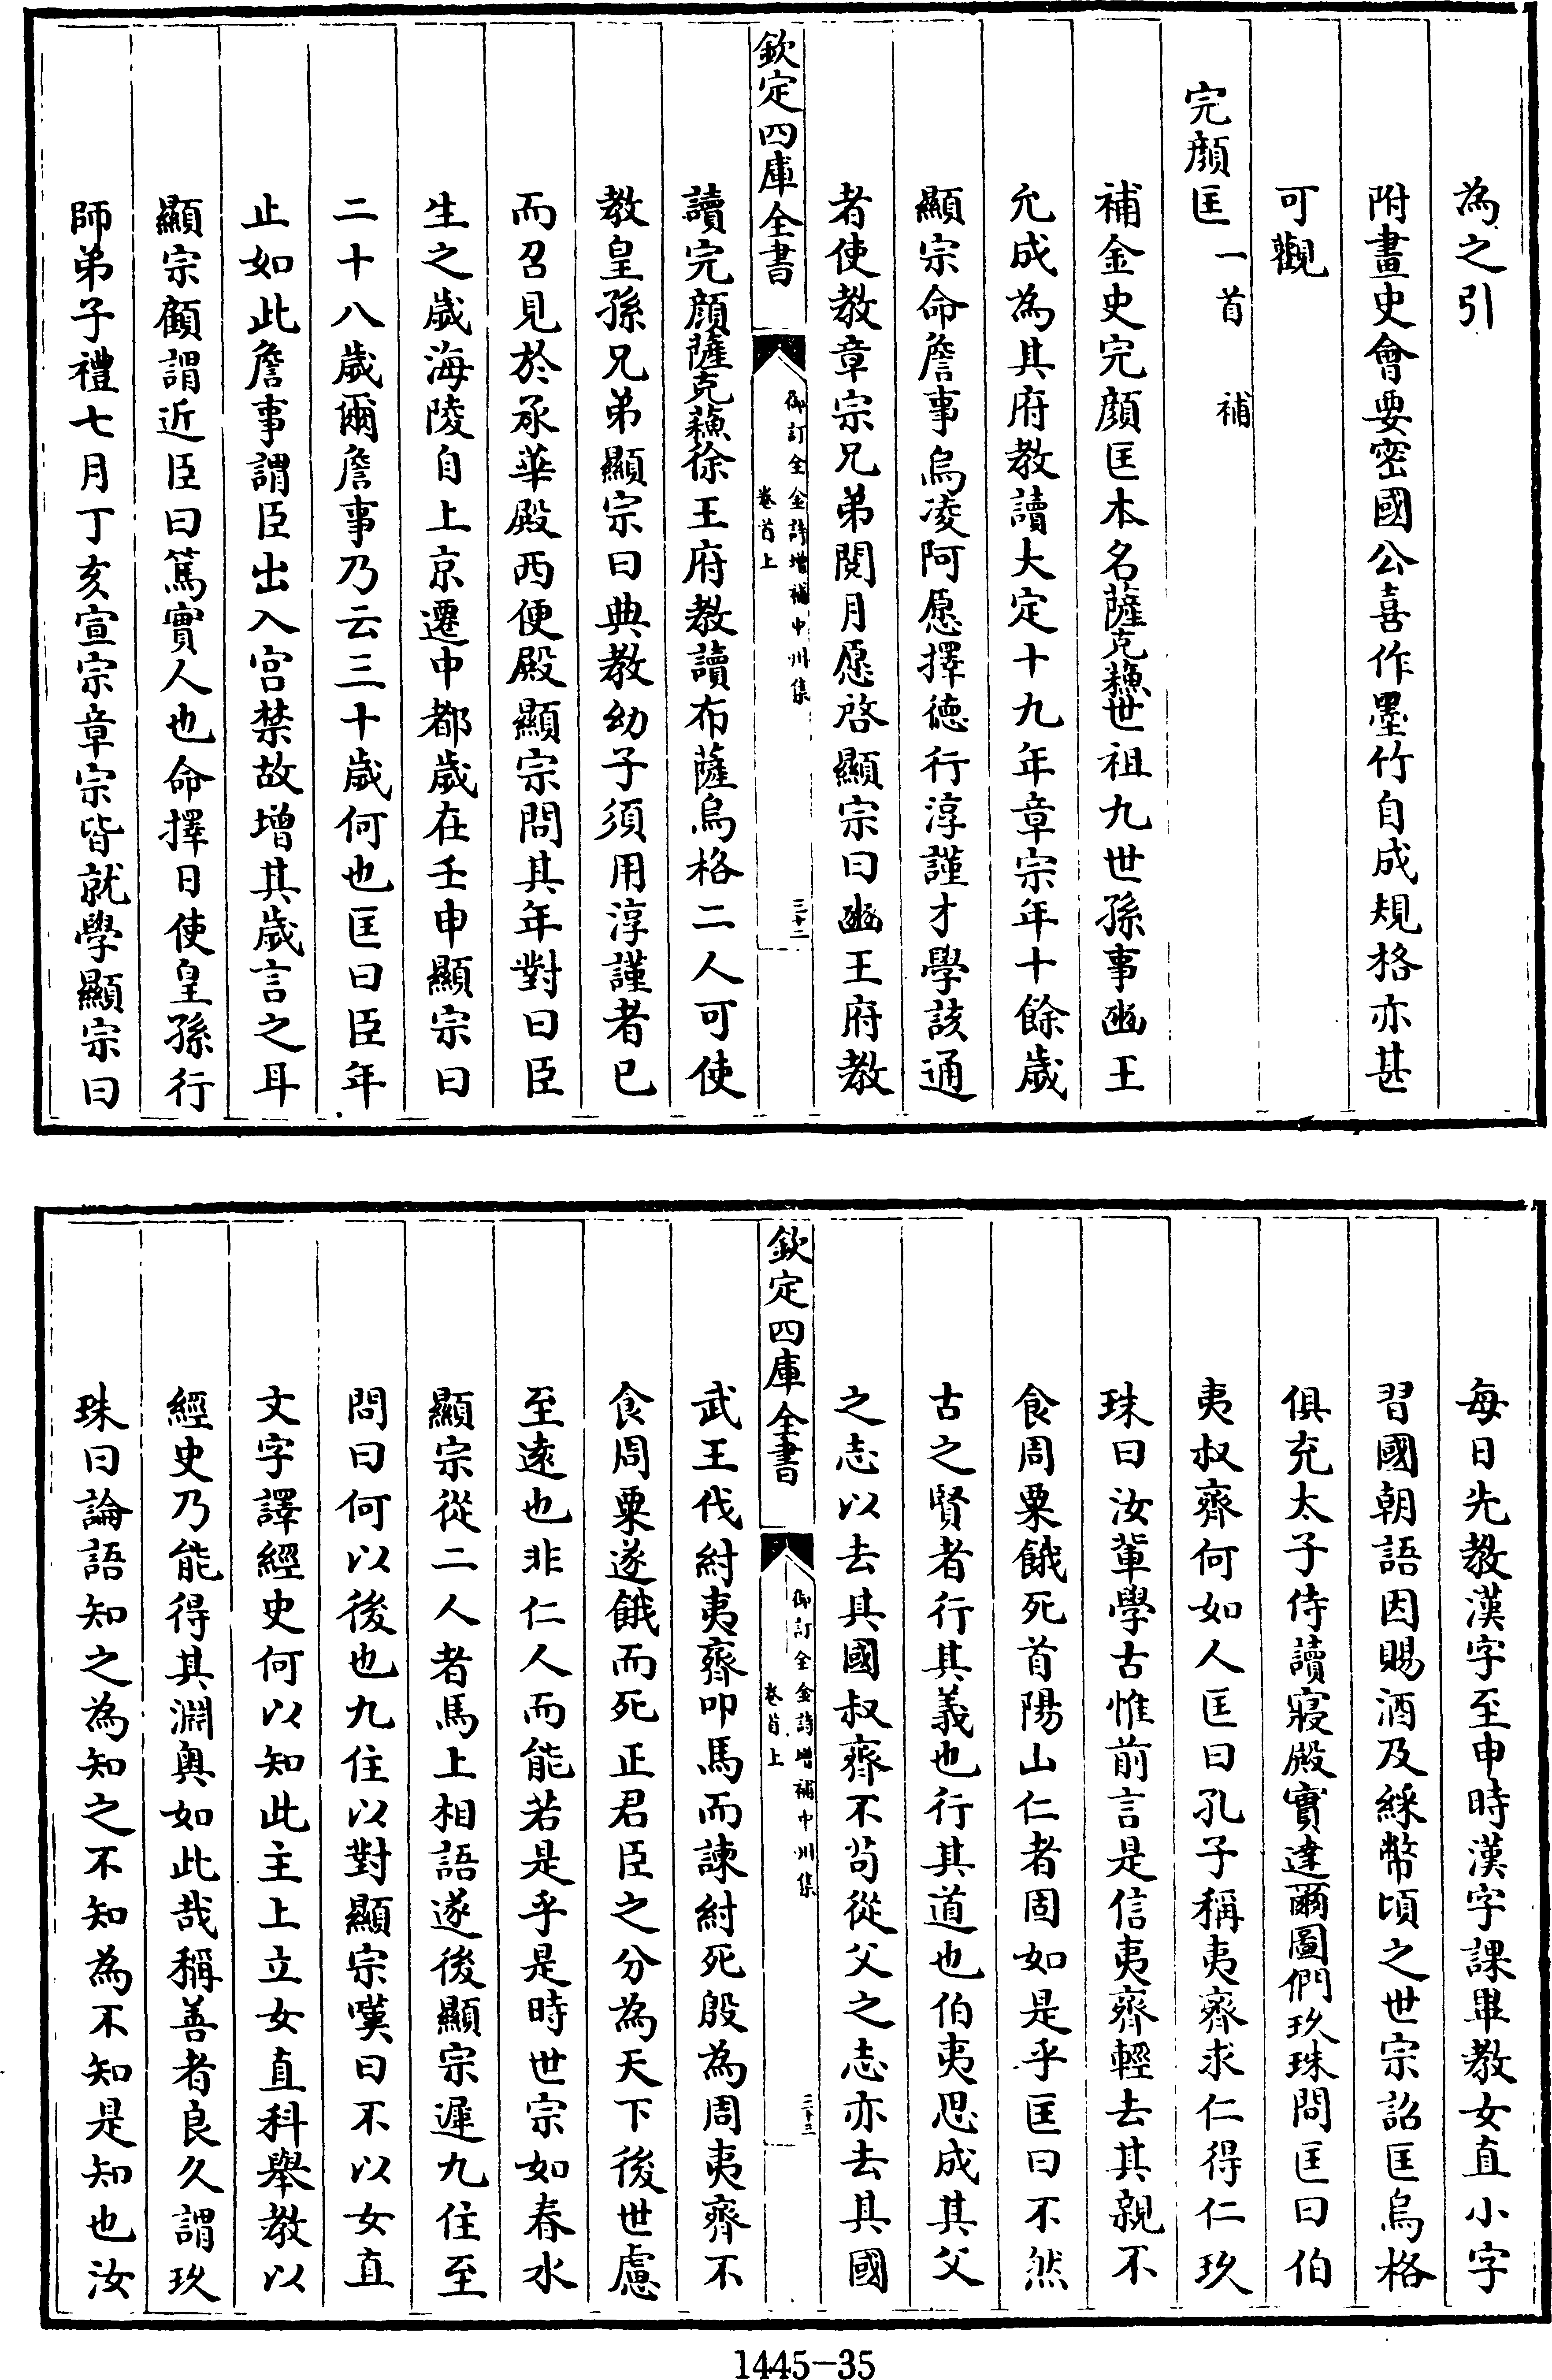 為之引
附畫史會要密國公喜作墨竹自成規格亦甚
可觀
完顏匡一首 補
補金史完顏匡本名薩克蘓世祖九世孫事豳王
允成為其府教讀大定十九年章宗年十餘歲
顯宗命詹事烏凌阿愿擇德行淳謹才學該通
者使教章宗兄弟閱月愿啓顯宗曰豳王府教
欽定四庫全書
御訂全金詩增補中州集
卷首上
三十二
讀完顏薩克蘓徐王府教讀布薩烏格二人可使
教皇孫兄弟顯宗曰典教幼子須用淳謹者已
而召見於承華殿西便殿顯宗問其年對曰臣
生之歲海陵自上京遷中都歲在壬申顯宗曰
二十八歲爾詹事乃云三十歲何也匡曰臣年
止如此詹事謂臣出入宫禁故增其歲言之耳
顯宗顧謂近臣曰篤實人也命擇日使皇孫行
師弟子禮七月丁亥宣宗章宗皆就學顯宗曰
每日先教漢字至申時漢字課畢教女直小字
習國朝語因賜酒及綵幣頃之世宗詔匡烏格
俱充太子侍讀寢殿實達爾圖們玖珠問匡曰伯
夷叔齊何如人匡曰孔子稱夷齊求仁得仁玖
珠曰汝輩學古惟前言是信夷齊輕去其親不
食周粟餓死首陽山仁者固如是乎匡曰不然
古之賢者行其義也行其道也伯夷思成其父
之志以去其國叔齊不苟從父之志亦去其國
欽定四庫全書
御訂全金詩增補中州集
卷首上
三十三
武王伐紂夷齊叩馬而諫紂死殷為周夷齊不
食周粟遂餓而死正君臣之分為天下後世慮
至遠也非仁人而能若是乎是時世宗如春水
顯宗從二人者馬上相語遂後顯宗遲九住至
問曰何以後也九住以對顯宗嘆曰不以女直
文字譯經史何以知此主上立女直科舉教以
經史乃能得其淵奥如此哉稱善者良久謂玖
珠曰論語知之為知之不知為不知是知也汝
1445-35